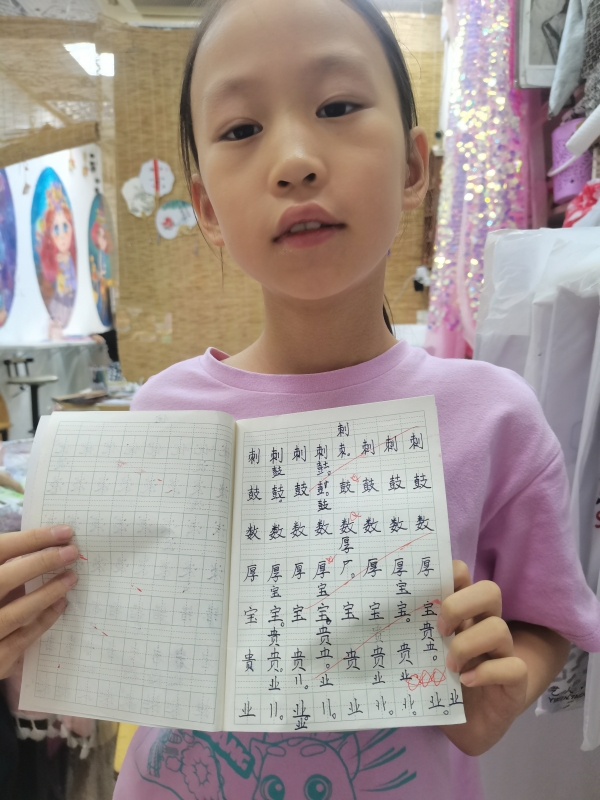 刺
刺 刺 刺 刺 刺 刺 刺 刺
鼓 鼓
鼓 鼓 鼓 鼓 鼓 鼓 鼓
鼓
数 数 数 数 数 数 数 数
厚
厚 厚 厚 厚 厂 厚 厚 厚
宝 宝 宝
宝 宝 宝 宝 宝 宝 宝 宝
贵 贵 贵
貴 贵 贵 贵 贵 贵 贵
业 业 业
业 业 业 业 业
业